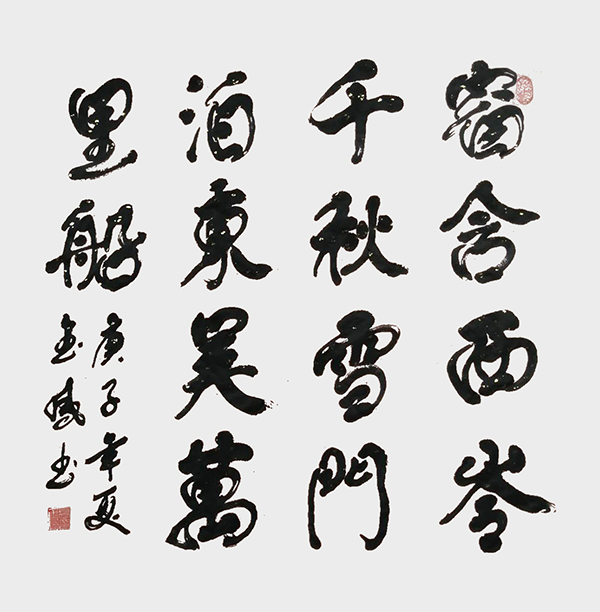 窗含西岺
千秋雪門
泊東吳萬
里船
庚子年夏
书